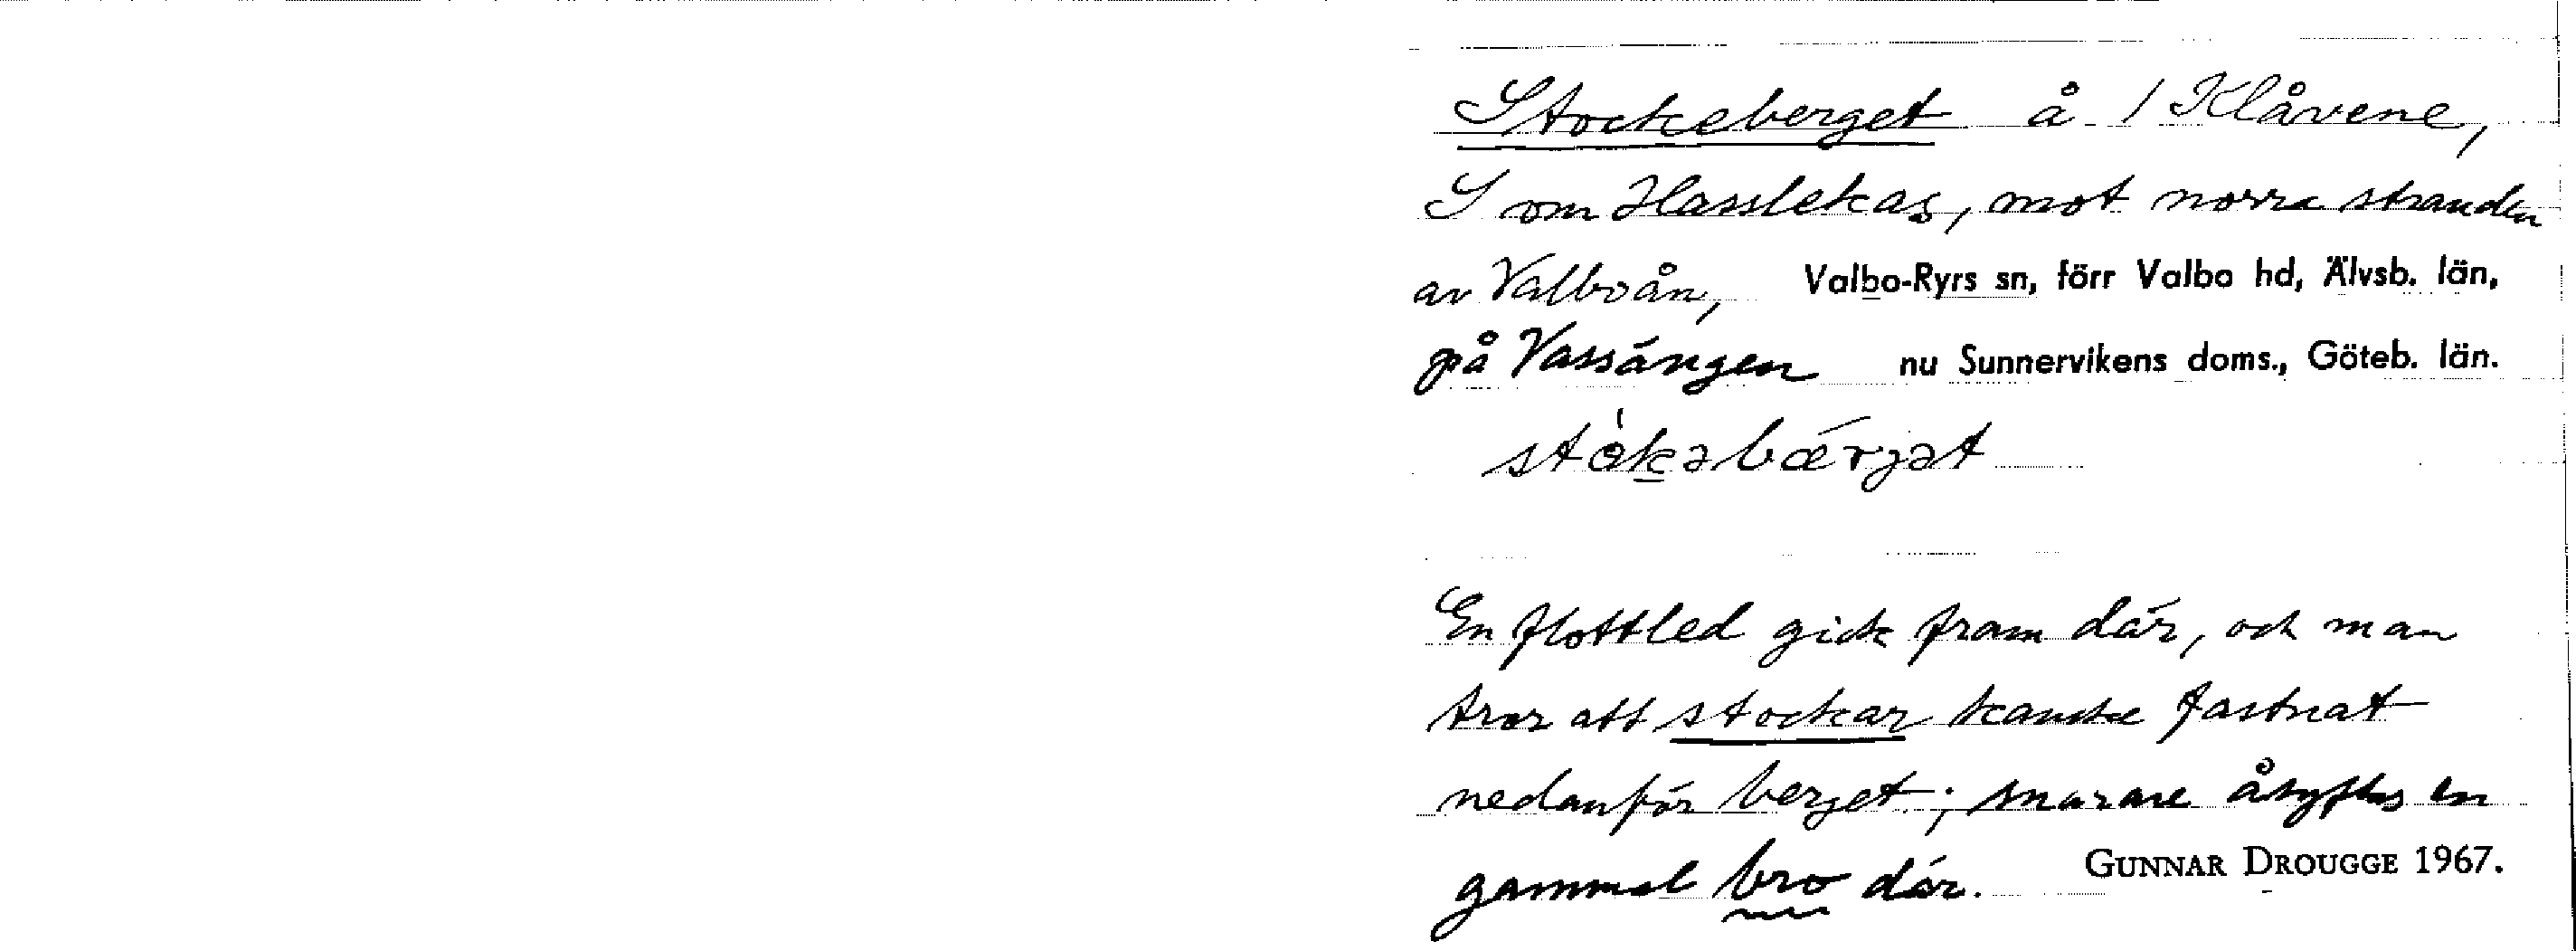 Stockeberget å 1 Klåvene,
S om Hasslekas, mot norra stranden
av Valboån, Valbo-Ryrs sn, förr Valbo hd, Älvsb. län,
på Vassängen nu Sunnervikens doms., Göteb. län.
stòkəbærjət
En flottled gick fram där, och man
tror att stockar kanske fastnat
nedanför berget; snarare åsyftas en
gammal bro där. GUNNAR DROUGGE 1967.